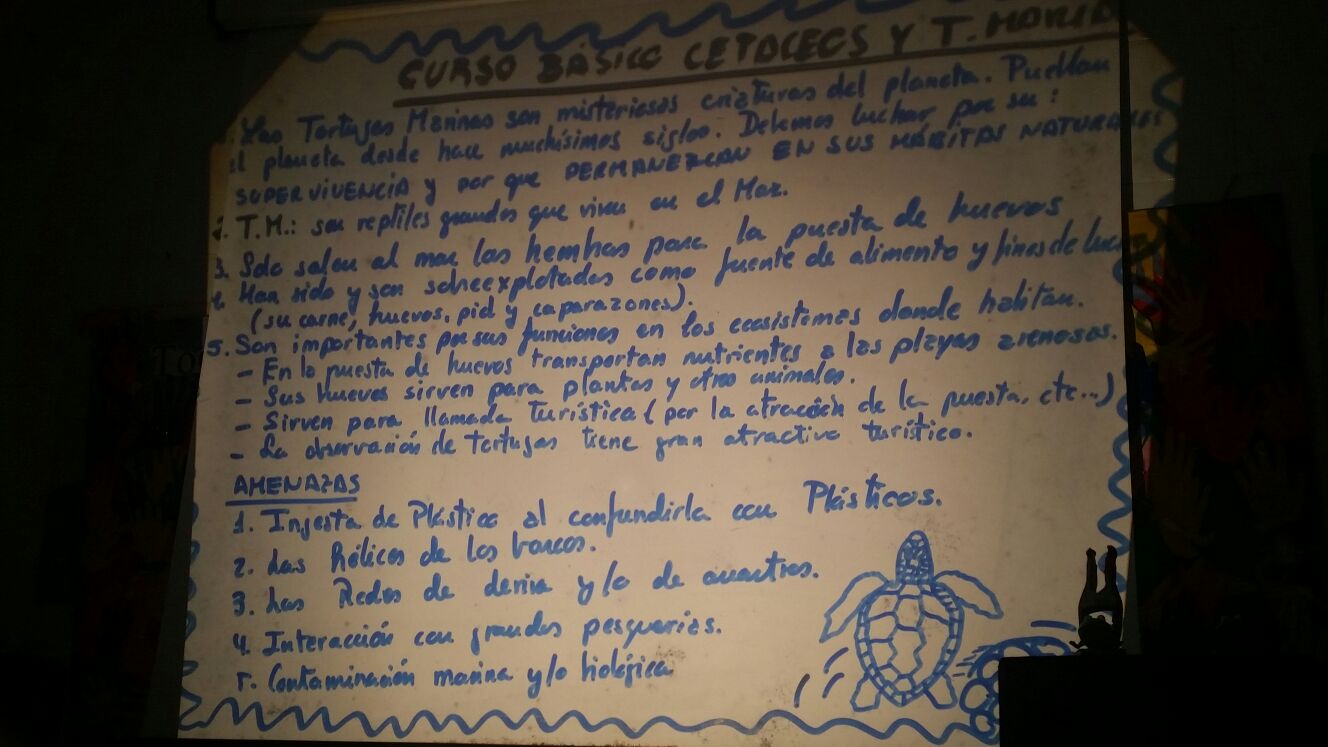 CURSO BÁSICO CETACEOS Y T. MARINA
Las Tortugas Marinas son misteriosas criaturas del planeta. Pueblan
el planeta desde hace muchísimos siglos. Debemos luchar por su:
SUPERVIVENCIA y por que PERMANEZCAN EN SUS HÁBITAS NATURALES
2. T.M.: son reptiles grandes que viven en el Mar.
3. Solo salen al mar las hembras para la puesta de huevos
4. Han sido y son sobreexplotadas como fuente de alimento y fines de
(su carne, huevos, piel y caparazones).
5. Son importantes por sus funciones en los ecosistemas donde habitan.
- En la puesta de huevos transportan nutrientes a las playas arenosas.
- Sus huevos sirven para plantas y otros animales.
- Sirven para llamada turística (por la atracción de la puesta, etc...)
- La observación de tortugas tiene gran atractivo turístico.
AMENAZAS
1. Ingesta de Plástico al confundirla con Plásticos.
2. Las Hélices de los barcos.
3. Las Redes de deriva y/o de arrastres.
4. Interacción con grandes pesquerías.
5. Contaminación marina y/o biológica
To